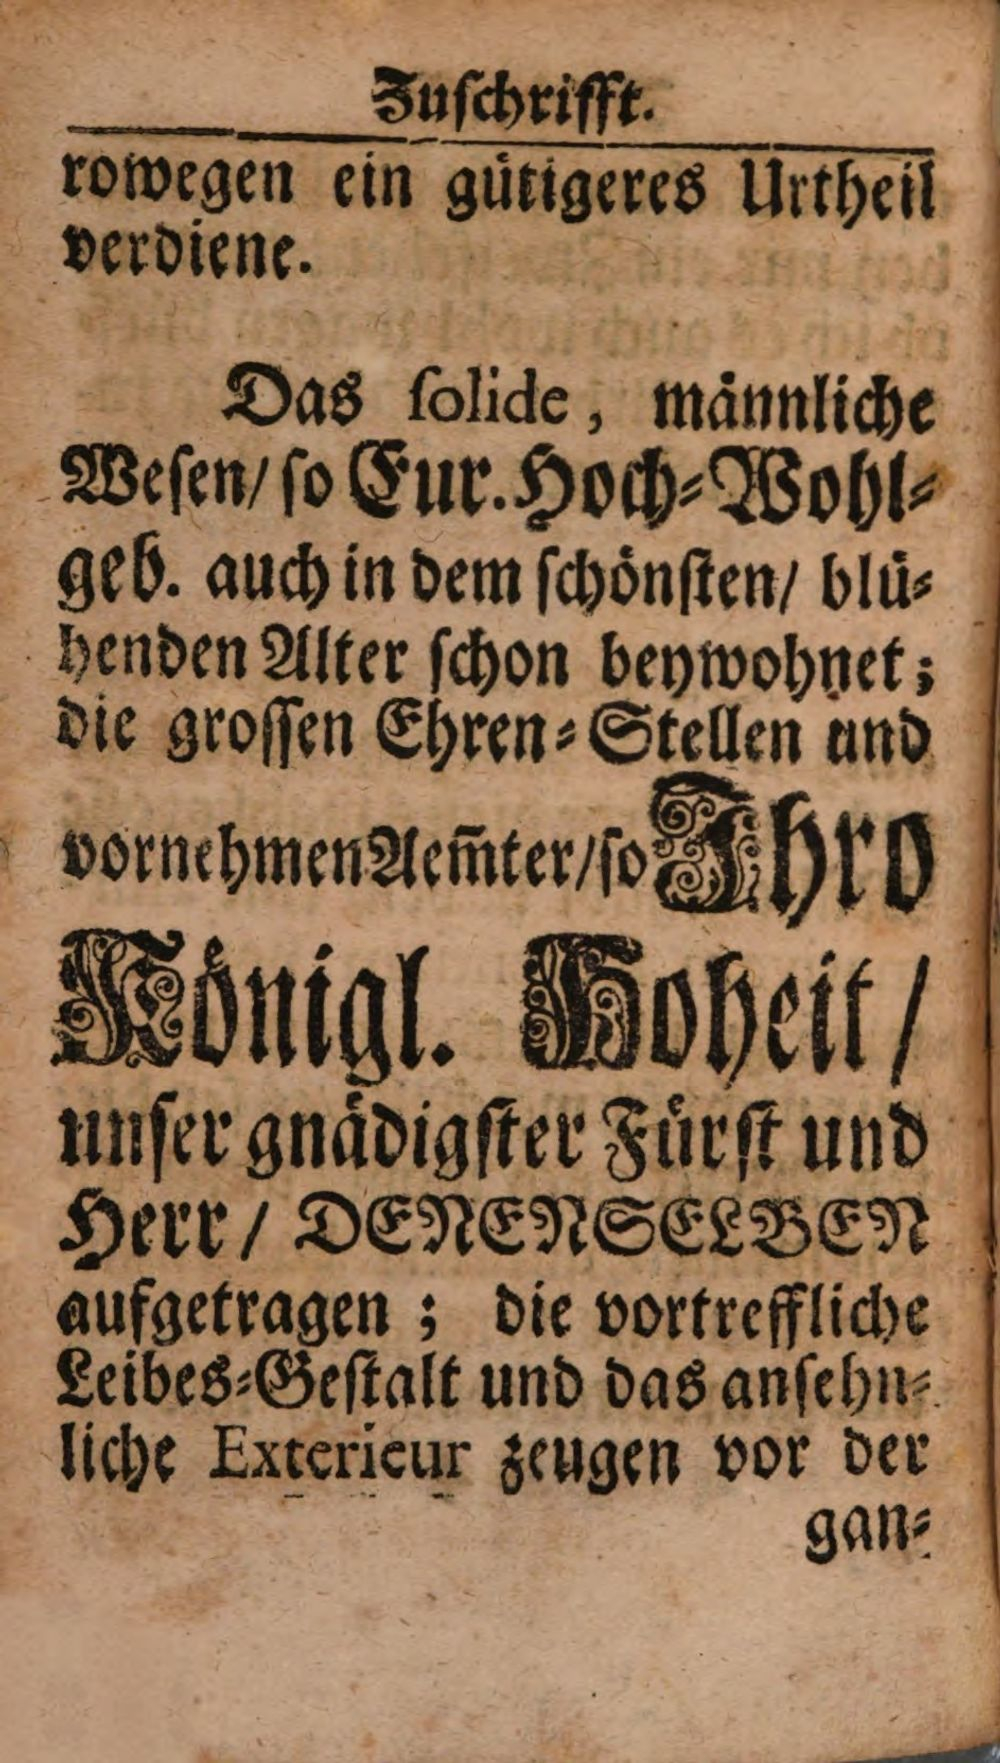 Zuſchrifft.
rowegen ein guͤtigeres Urtheil
verdiene.
Das ſolide, maͤnnliche
Weſen/ ſo Eur. Hoch⸗Wohl⸗
geb. auch in dem ſchoͤnſten/ bluͤ⸗
henden Alter ſchon beywohnet;
die groſſen Ehren⸗Stellen und
vornehmen Aem̃ter/ ſo Ihro
Koͤnigl. Hoheit/
unſer gnaͤdigſter Fuͤrſt und
Herr/ DENENSELBEN
aufgetragen; die vortreffliche
Leibes⸗Geſtalt und das anſehn⸗
liche Exterieur zeugen vor der
gan⸗